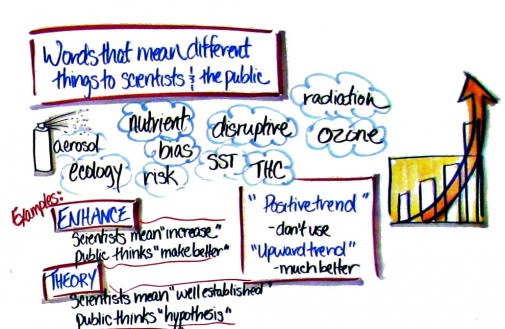 Words that mean different
things to scientists & the public
aerosol
nutrient
disruptive
radiation
ozone
bias
SST
THC
ecology
risk
Examples:
ENHANCE
Scientists mean "increase"
Public thinks "make better"
THEORY
Scientists mean "well established"
Public thinks "hypothesis"
"Positive trend"
-don't use
"Upward trend"
-much better